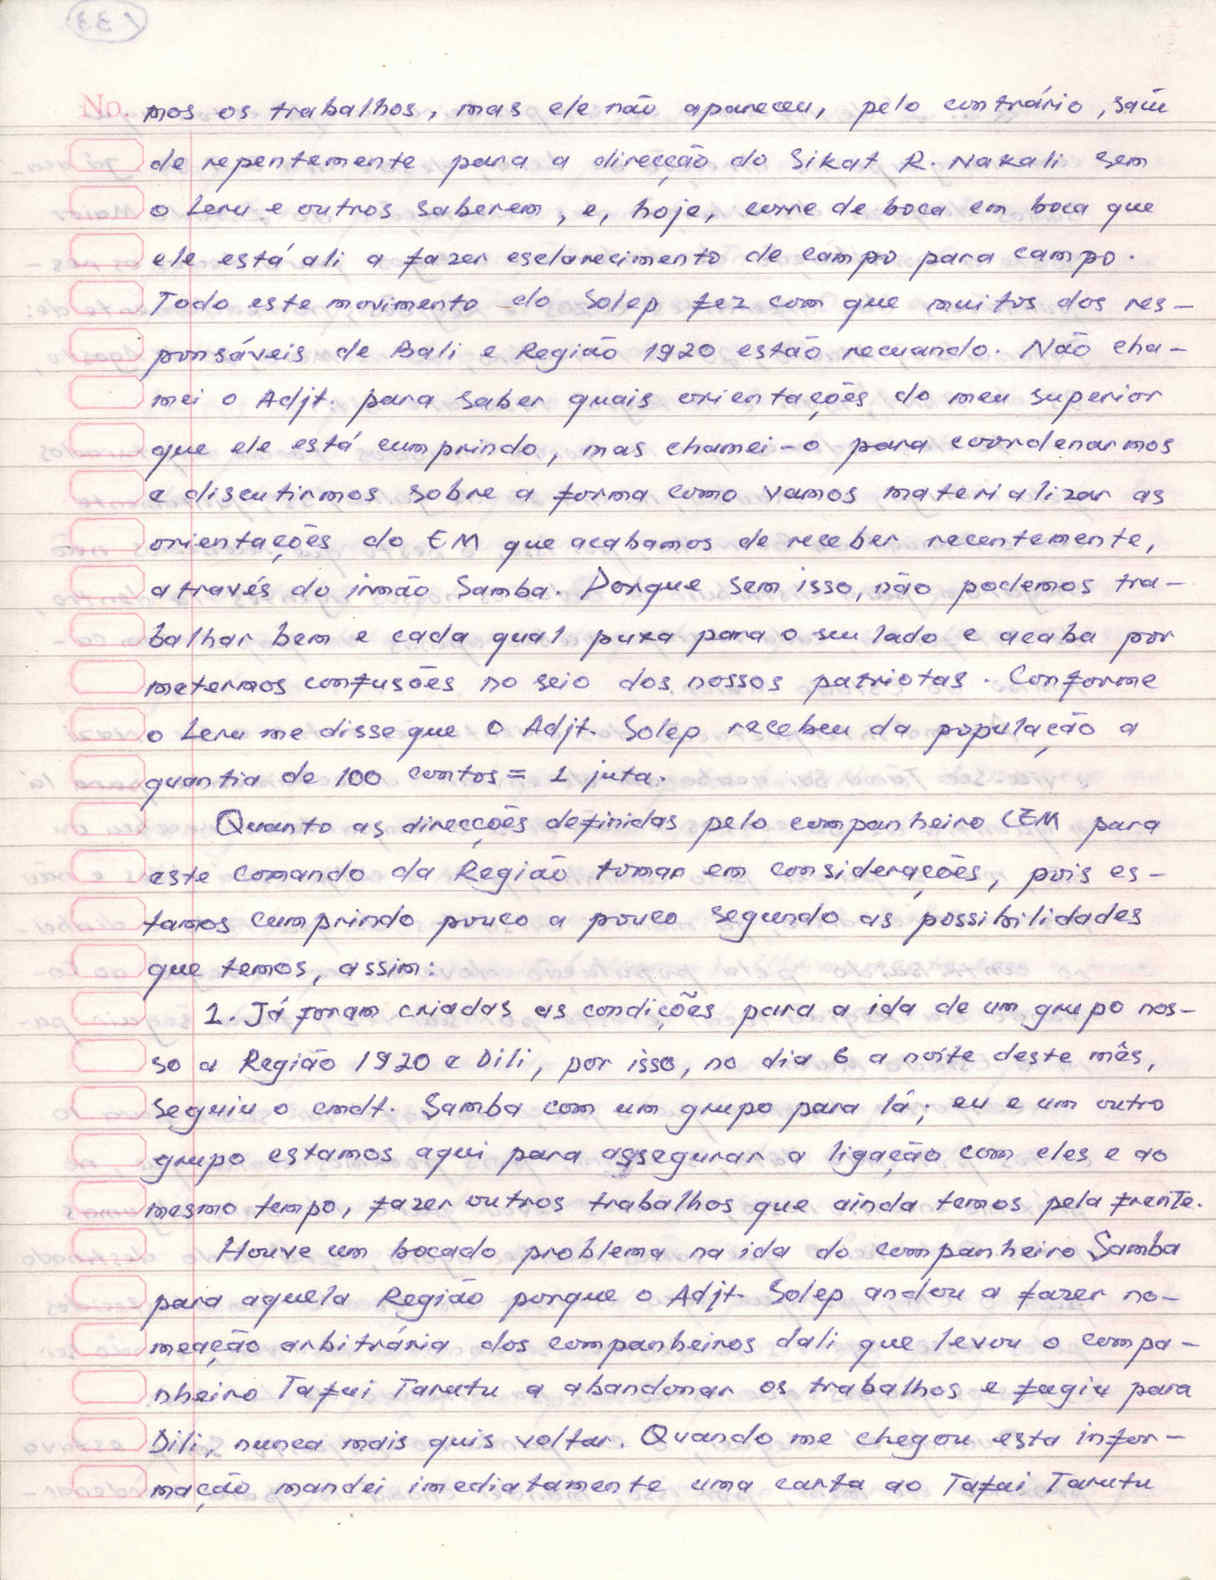 No. mos os trabalhos, mas ele não apareceu, pelo contrário, saíu
de repentemente para a direcção do Sikat R. Nakali sem
o Leru e outros saberem, e, hoje, corre de boca em boca que
ele está ali a fazer esclarecimento de campo para campo.
Todo este movimento do Solep fez com que muitos dos res-
ponsáveis de Bali e Região 1920 estão recuando. Não cha-
mei o Adjt. para saber quais orientações do meu superior
que ele está cumprindo, mas chamei-o para coordenarmos
e discutirmos sobre a forma como vamos materializar as
orientações do EM que acabamos de receber recentemente,
através do irmão Samba. Porque sem isso, não podemos tra-
balhar bem e cada qual puxa para o seu lado e acaba por
metermos confusões no seio dos nossos patriotas. Conforme
o Leru me disse que o Adjt. Solep recebeu da população a
quantia de 100 contos = 1 juta.
Quanto as direcções definidas pelo companheiro CEM para
este comando da Região tomar em considerações, pois es-
tamos cumprindo pouco a pouco segundo as possibilidades
que temos, assim:
1. Já foram criadas as condições para a ida de um grupo nos-
so a Região 1920 e Dili, por isso, no dia 6 a noite deste mês,
seguiu o cmdt. Samba com um grupo para lá; eu e um outro
grupo estamos aqui para assegurar a ligação com eles e ao
mesmo tempo, fazer outros trabalhos que ainda temos pela frente.
Houve um bocado problema na ida do companheiro Samba
para aquela Região porque o Adjt. Solep andou a fazer no-
meação arbitrária dos companheiros dali que levou o compa-
nheiro Tafui Tarutu a abandonar os trabalhos e fugiu para
Dili, nunca mais quis voltar. Quando me chegou esta infor-
mação mandei imediatamente uma carta ao Tafui Tarutu